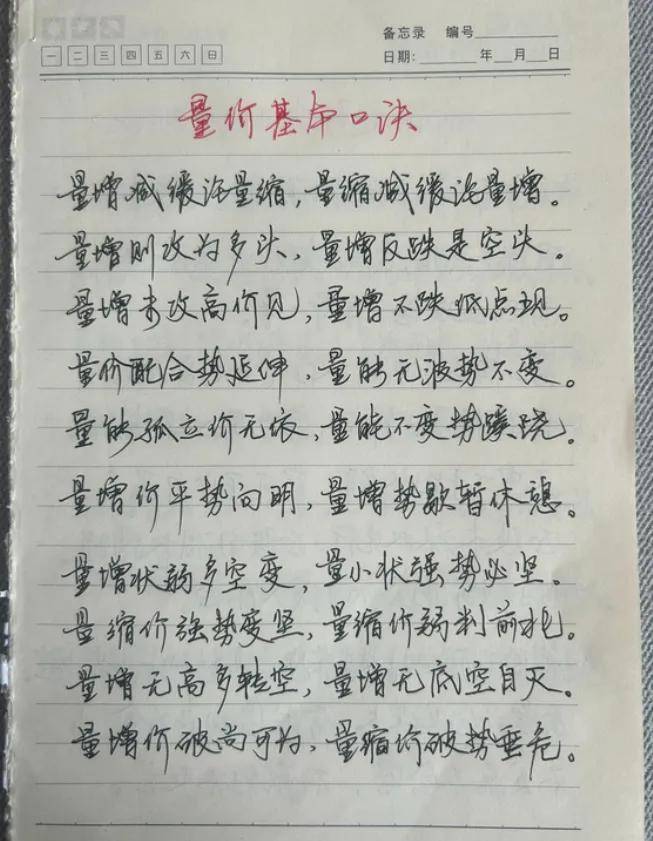 备忘录 编号
一 二 三 四 五 六 日
日期: 年 月 日
量价基本口诀
量增减缓论量缩，量缩减缓论量增。
量增则攻为多头，量增反跌是空头。
量增未攻高价见，量增不跌低点现。
量价配合势延伸，量能无波势不变。
量能孤立价无依，量能不变势蹊跷。
量增价平势向明，量增势歇暂休憩。
量增状弱多空变，量小状强势必坚。
量缩价强势变坚，量缩价弱判前兆。
量增无高多转空，量增无底空自灭。
量增价破尚可为，量缩价破势垂危。